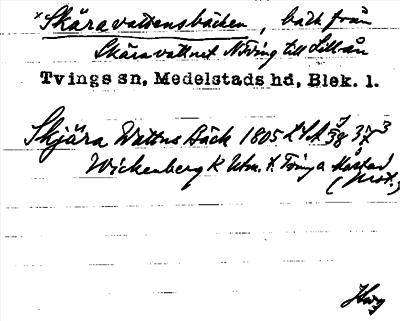 x Skäravattensbäcken, bäck från
Skäravattnet N Tving till Lillån
Tvings sn, Medelstads hd, Blek. l.
Skjära Wattns Bäck 1805 LSA
Wickenberg K Utm. t. Tvinga
(prot.)